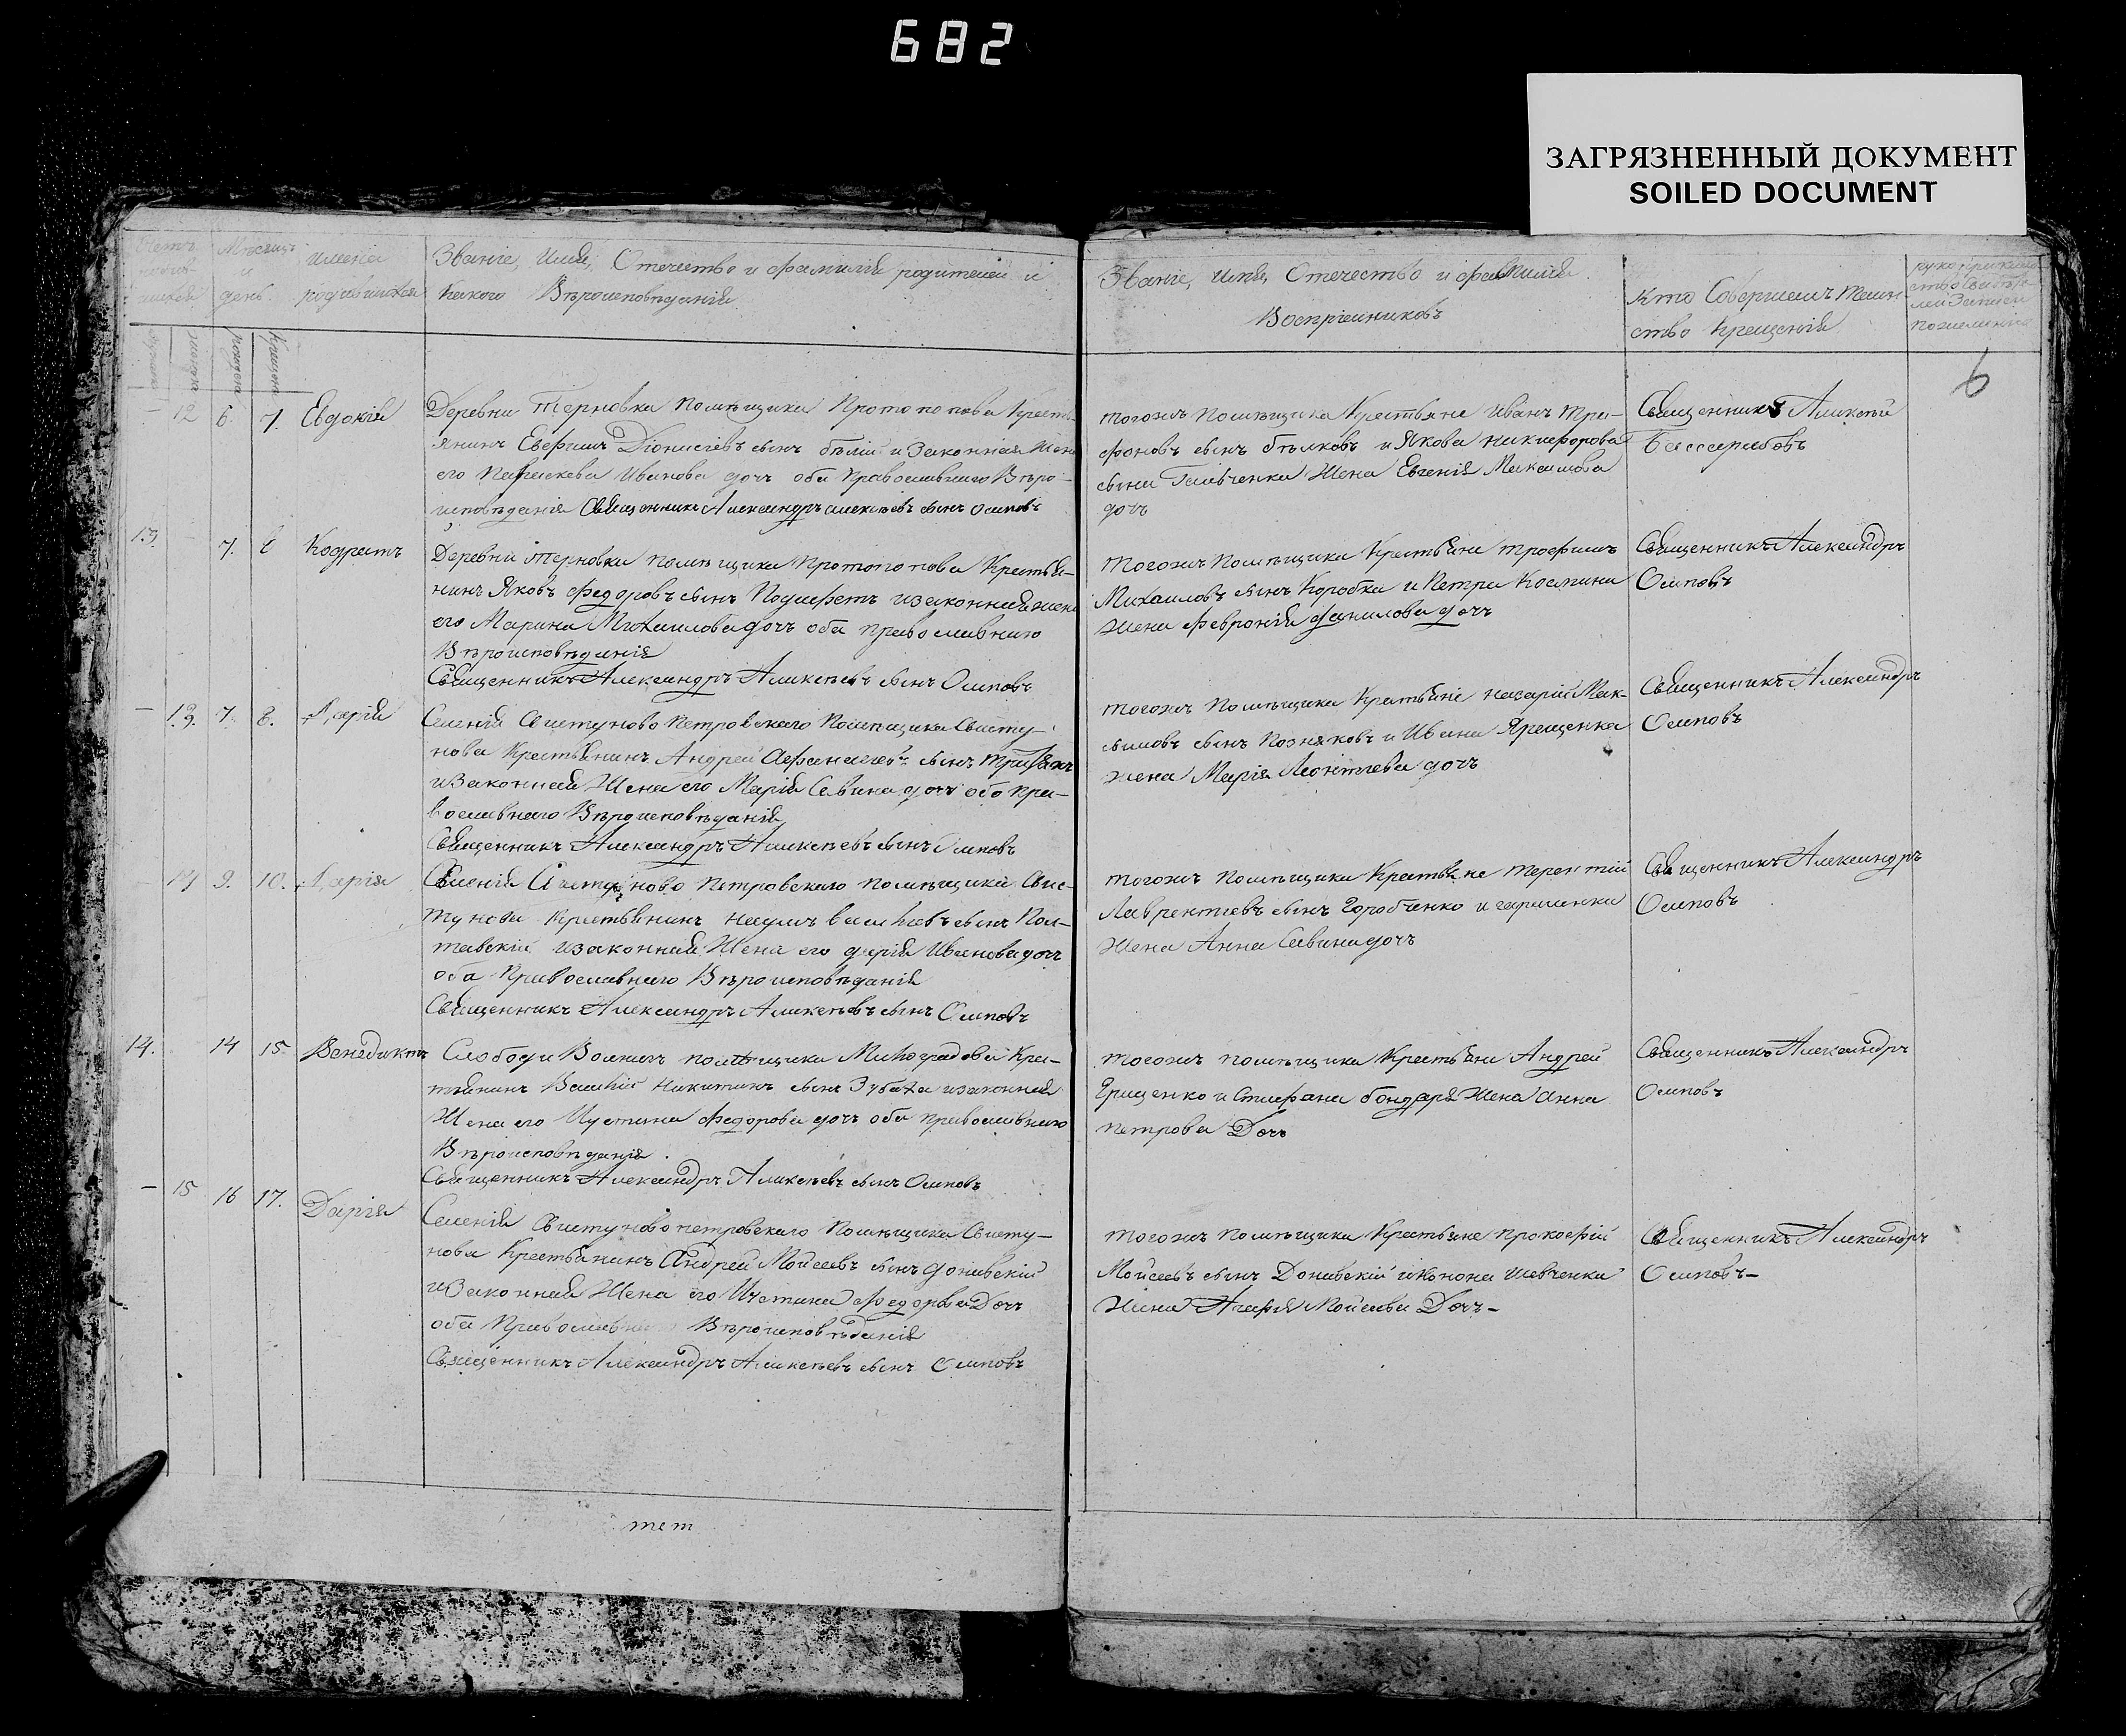 682
ЗАГРЯЗНЕННЫЙ ДОКУМЕНТ
SOILED DOCUMENT
Мѣсяцъ и день
имена родившихся
Званіе, Имя, Отечество и фамилія родителей и
какого Вѣроисповѣданія
Званіе, имя, Отечество и фамилія
Воспріемниковъ
Кто Совершалъ Таин
ство Крещенія
6
12 6. 7. Евдокія
Деревни Терновки помѣщика Протопопова Крестъ
янинъ Евфимъ Діонисіевъ сынъ бѣлій и Законная жена
его Параскева Иванова дочъ оба Православнаго Вѣро-
исповѣданія Священникъ Александръ Алексѣевъ сынъ Осиповъ
тогожъ помѣщика Крестьяне Иванъ Три-
фоновъ сынъ бѣлковъ и Якова Никифорова
сына Галвченка Жена Евгенія Максимова
дочъ
Священникъ Алексѣй
Бессарабовъ
13. 7. 8 Кодратъ
Деревни Терновки помѣщика Протопопова Крестья-
нинъ Яковъ Федоровъ сынъ и законная жена
его Марина Михаилова дочъ оба православнаго
Вѣроисповѣданія
Священникъ Александръ Алексѣевъ сынъ Осиповъ
Тогожъ Помѣщика Крестьяне Трофимъ
Михаиловъ сынъ Коробка и Петра Космина
жена Февронія данилова дочъ
Священникъ Александръ
Осиповъ
13. 7. 8. Дарія
Селенія Свистуново Петровскаго Помѣщика Свисту-
нова Крестьянинъ Андрей Афанасіевъ сынъ
и Законная Жена его Марія Савина дочъ оба пра-
вославнаго Вѣроисповѣданія
Священникъ Александръ Алексѣевъ сынъ Осиповъ
тогожъ помѣщика Крестьяне назарій Мак-
симовъ сынъ Позняковъ и Ивана Ярещенка
жена Марія Леонтіева дочъ
Священникъ Александръ
Осиповъ
14 9. 10. Дарія
Селенія Свистуново Петровскаго помѣщика Свис-
тунова Крестьянинъ наумъ васильевъ сынъ Пол-
тавскій и законная Жена его дарія Иванова дочъ
оба Православнаго Вѣроисповѣданія
Священникъ Александръ Алексѣевъ сынъ Осиповъ
тогожъ Помѣщика Крестьяне терентій
Лаврентіевъ сынъ Горобченко и
жена Анна Савина дочъ
Священникъ Александръ
Осиповъ
14. 14 15. Венедиктъ
Слободи помѣщика Милорадова Крес-
тьянинъ Василій Никитинъ сынъ Зубаха и законная
Жена его Иустина Федорова дочъ оба православнаго
Вѣроисповѣданія
Священникъ Александръ Алексѣевъ сынъ Осиповъ
тогожъ помѣщика Крестьяне Андрей
Грищенко и Стефана бондаря жена Анна
петрова Дочъ
Священникъ Александръ
Осиповъ
15 16 17. Дарія
Селенія Свистуново петровскаго Помѣщика Свисту-
нова Крестьянинъ Андрей Мойсеевъ сынъ донивскій
и Законная Жена его Иустина Федорова Дочъ
оба Православнаго Вѣроисповѣданія
Священникъ Александръ Алексѣевъ сынъ Осиповъ
тогожъ помѣщика Крестьяне прокофій
Мойсеевъ сынъ Донивскій и Конона шевченка
жена Агафія Мойсеева Дочъ-
Священникъ Александръ
Осиповъ-